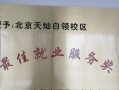 受予:北京天灿白领校区
最佳就业服务奖